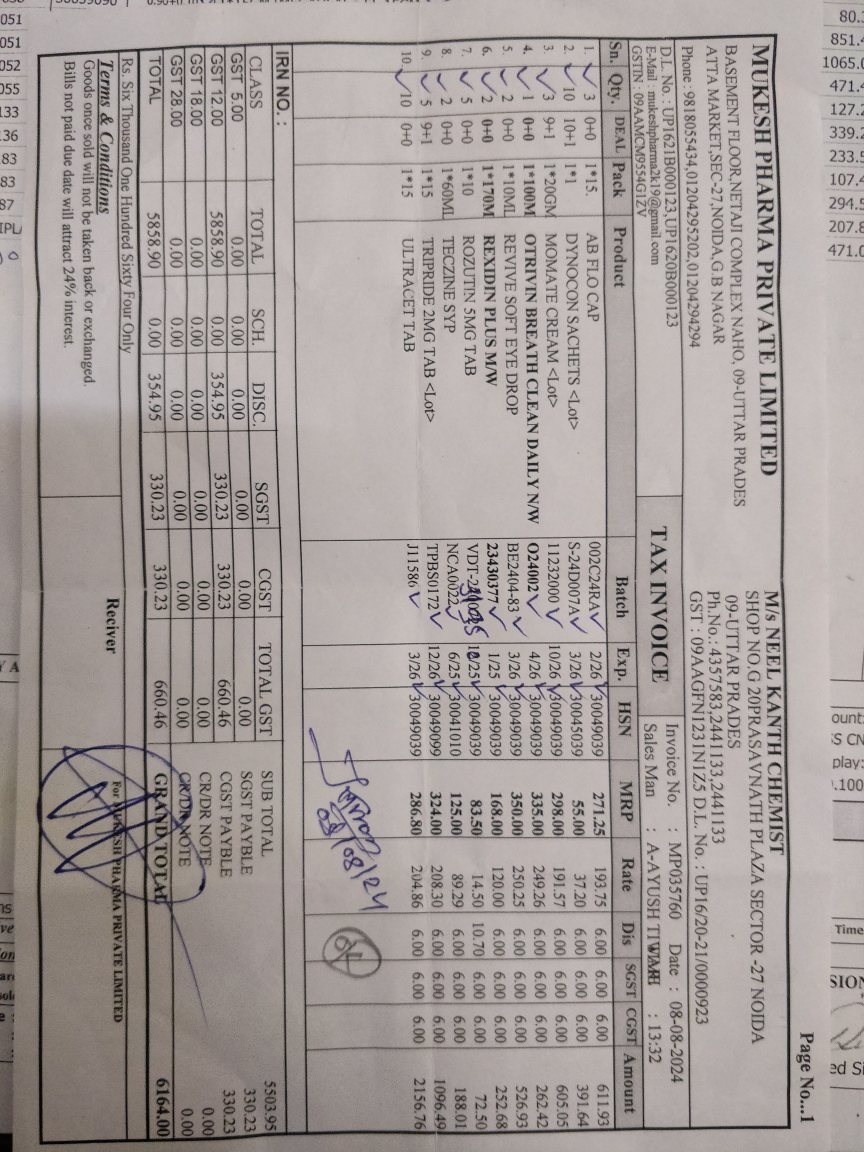 Page No...1
MUKESH PHARMA PRIVATE LIMITED
BASEMENT FLOOR,NETAJI COMPLEX NAHO, 09-UTTAR PRADES
ATTA MARKET,SEC-27,NOIDA,G.B NAGAR
Phone : 9818055434,01204295202,01204294294
D.L. No. : UP1621B000123,UP1620B000123
E-Mail : mukeshpharma2k19@gmail.com
GSTIN : 09AAMCM9554G1ZV
M/s NEEL KANTH CHEMIST
SHOP NO.G 20PRASAVNATH PLAZA SECTOR -27 NOIDA
09-UTTAR PRADES
Ph.No.: 4357583,2441133,2441133
GST : 09AAGFN1231N1Z5 D.L. No. : UP16/20-21/0000923
TAX INVOICE
Invoice No. : MP035760 Date : 08-08-2024
Sales Man : A-AYUSH : 13:32
Sn. Qty. DEAL Pack Product Batch Exp. HSN MRP Rate Dis SGST CGST Amount
1. 3 0+0 1*15. AB FLO CAP 002C24RA 2/26 30049039 271.25 193.75 6.00 6.00 6.00 611.93
2. 10 10+1 1*1 DYNOCON SACHETS <Lot> S-24D007A 3/26 30045039 55.00 37.20 6.00 6.00 6.00 391.64
3 3 9+1 1*20GM MOMATE CREAM <Lot> 11232000 10/26 30049039 298.00 191.57 6.00 6.00 6.00 605.05
4. 1 0+0 1*100M OTRIVIN BREATH CLEAN DAILY N/W O24002 4/26 30049039 335.00 249.26 6.00 6.00 6.00 262.42
5. 2 0+0 1*10ML REVIVE SOFT EYE DROP BE2404-83 3/26 30049039 350.00 250.25 6.00 6.00 6.00 526.93
6. 2 0+0 1*170M REXIDIN PLUS M/W 23430377 1/25 30049039 168.00 120.00 6.00 6.00 6.00 252.68
7. 5 0+0 1*10 ROZUTIN 5MG TAB 30049039 83.50 14.50 10.70 6.00 6.00 72.50
8. 2 0+0 1*60ML TECZINE SYP NCA0022 6/25 30041010 125.00 89.29 6.00 6.00 6.00 188.01
9. 5 9+1 1*15 TRIPRIDE 2MG TAB <Lot> TPBS0172 12/26 30049099 324.00 208.30 6.00 6.00 6.00 1096.49
10. 10 0+0 1*15 ULTRACET TAB J11586 3/26 30049039 286.80 204.86 6.00 6.00 6.00 2156.76
08/08/24
IRN NO. :
CLASS TOTAL SCH. DISC. SGST CGST TOTAL GST
GST 5.00 0.00 0.00 0.00 0.00 0.00 0.00
GST 12.00 5858.90 0.00 354.95 330.23 330.23 660.46
GST 18.00 0.00 0.00 0.00 0.00 0.00 0.00
GST 28.00 0.00 0.00 0.00 0.00 0.00 0.00
TOTAL 5858.90 0.00 354.95 330.23 330.23 660.46
SUB TOTAL 5503.95
SGST PAYBLE 330.23
CGST PAYBLE 330.23
CR/DR NOTE 0.00
CR/DR NOTE 0.00
GRAND TOTAL 6164.00
Rs. Six Thousand One Hundred Sixty Four Only
Terms & Conditions
Goods once sold will not be taken back or exchanged.
Bills not paid due date will attract 24% interest.
Reciver
For MUKESH PHARMA PRIVATE LIMITED